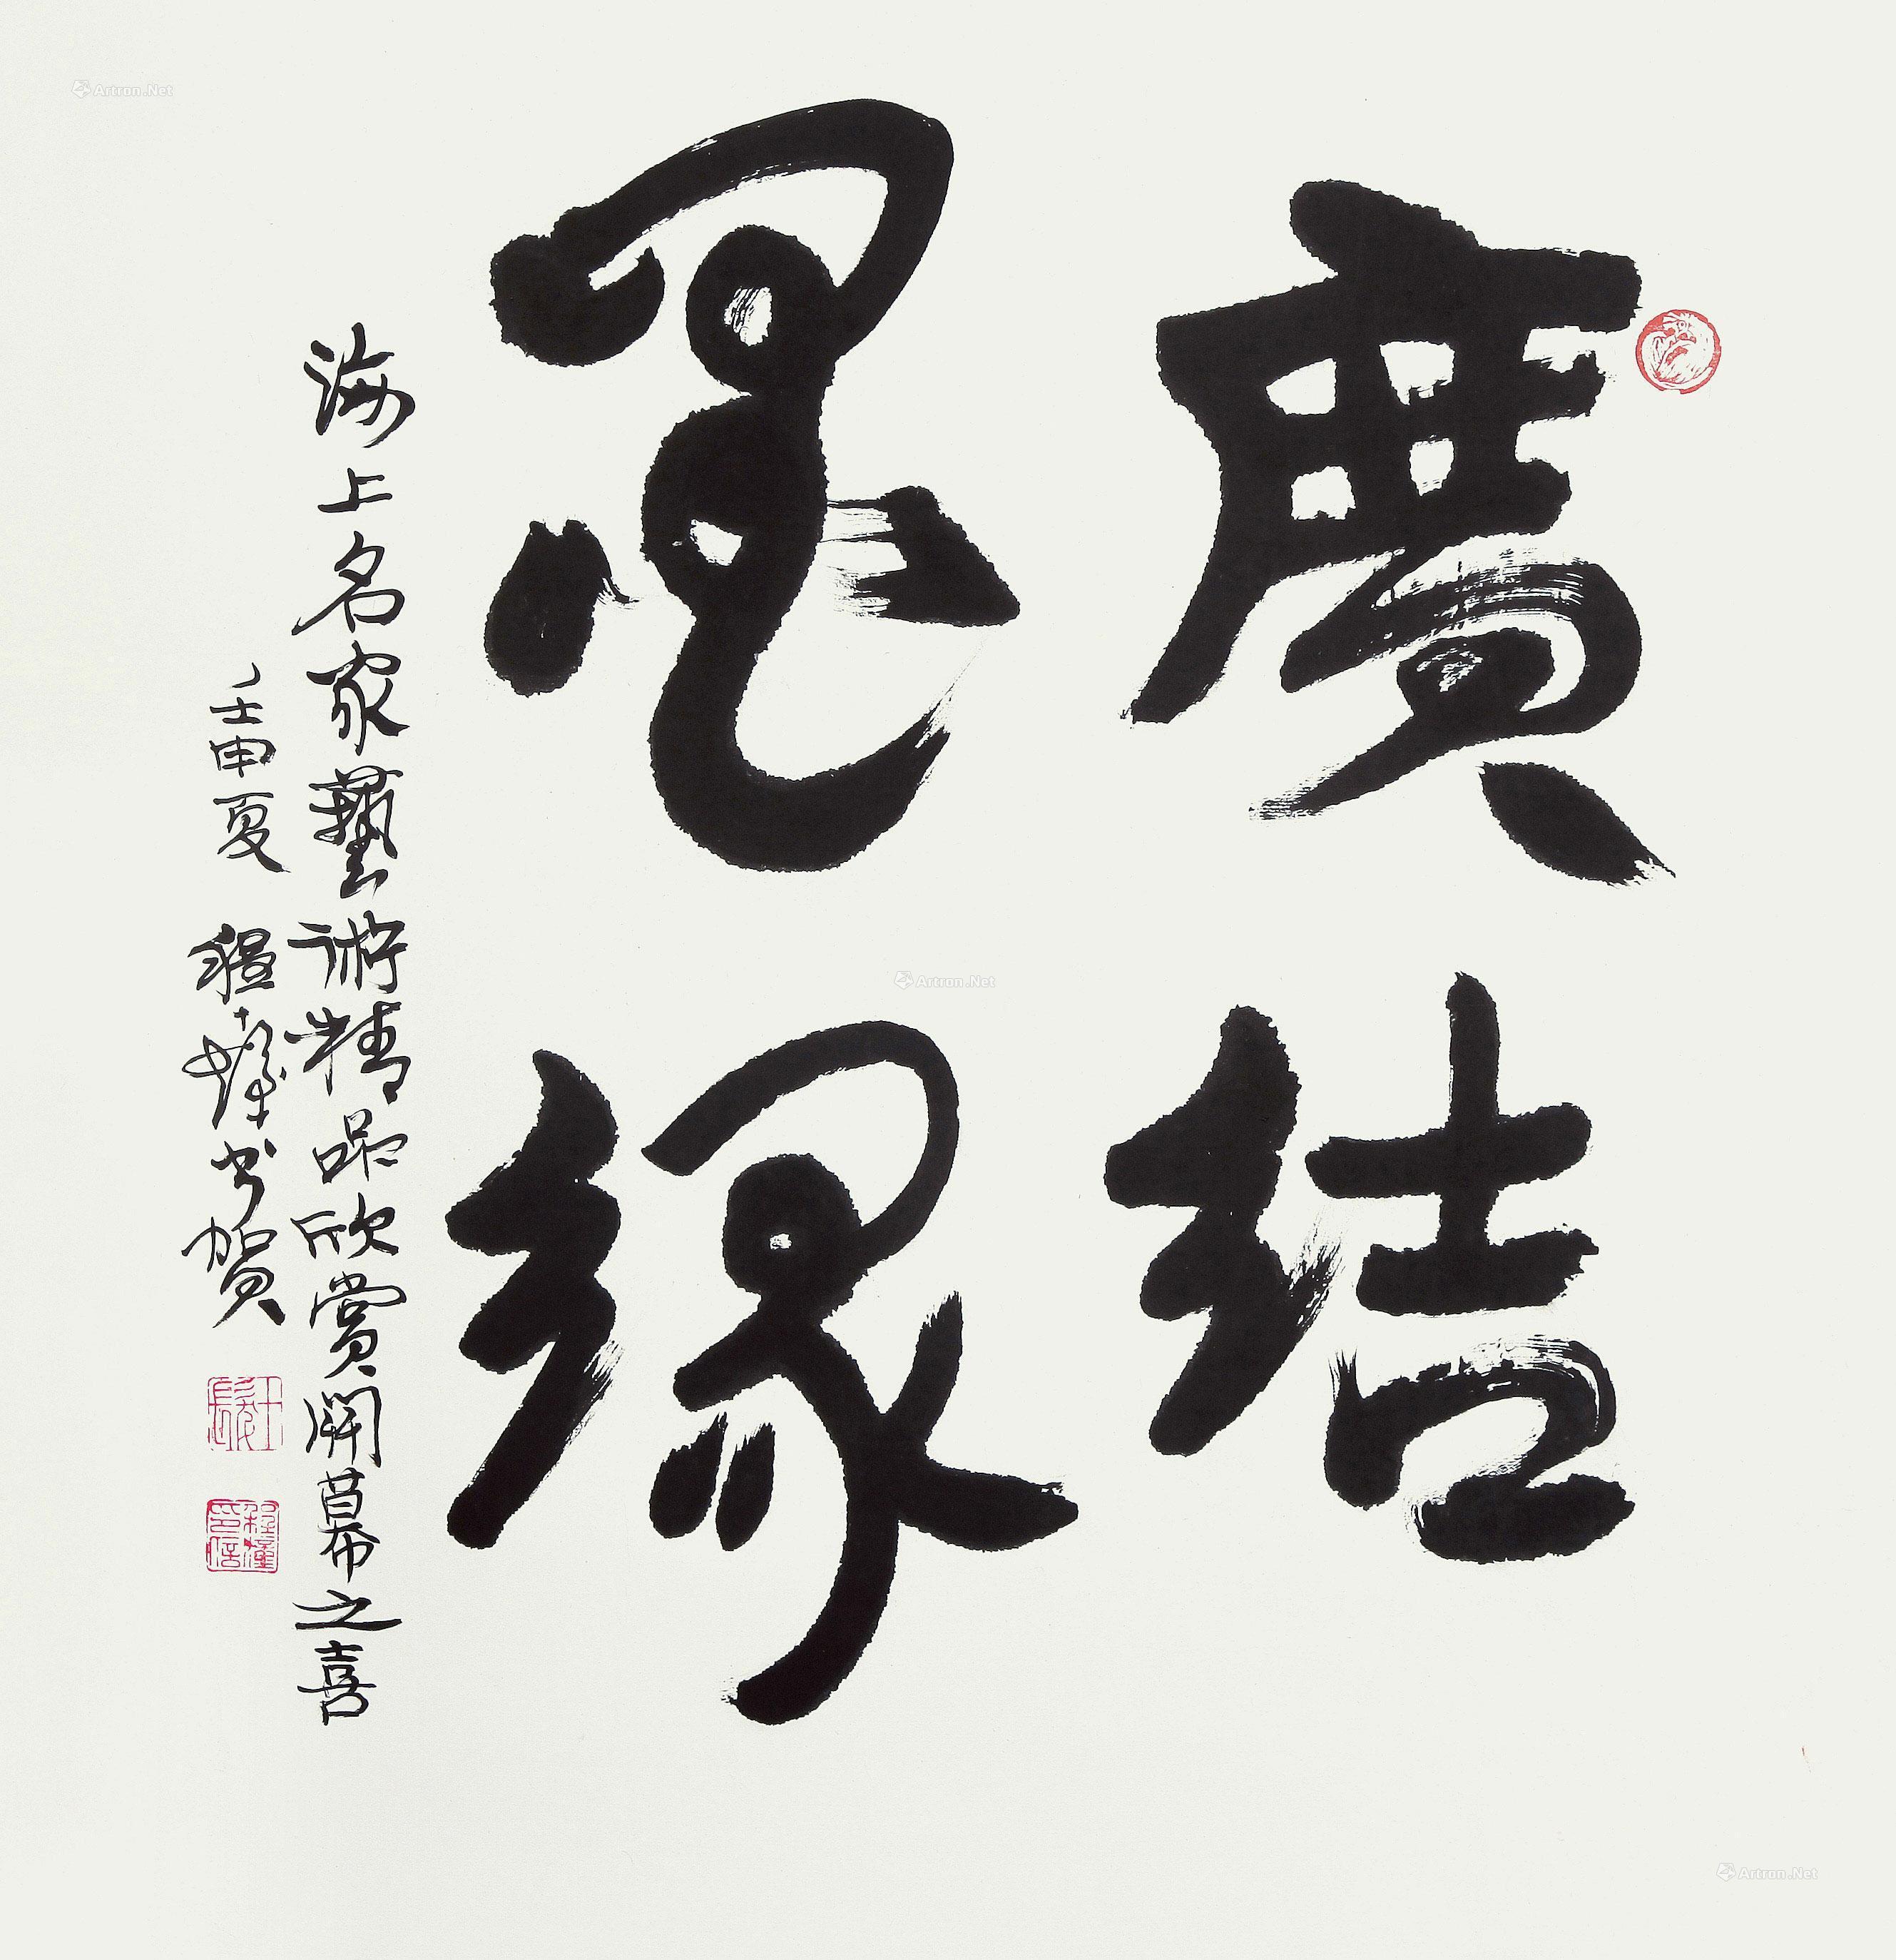 廣結
墨緣
海上名家藝術精品欣賞開幕之喜
壬申夏 程十髮書賀
程十髮印信
Artron.Net
Artron.Net
Artron.Net